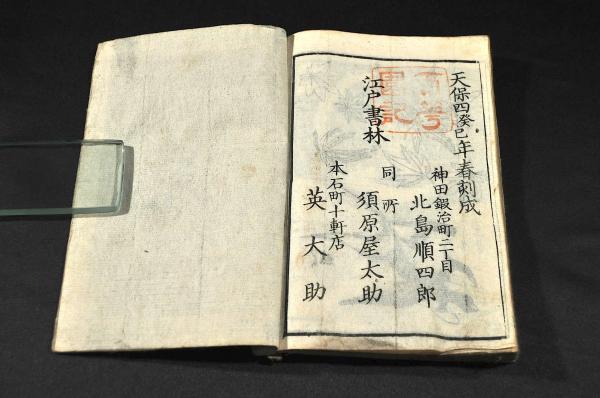 天保四癸巳年春刻成
神田鍛冶町二丁目
北島順四郎
江戸書林
同所
須原屋太助
本石町十軒店
英大助